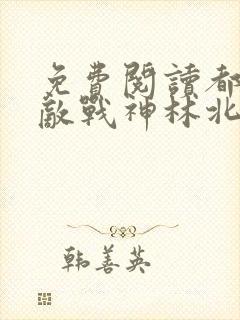 免費閱讀都
敵戰神林北
韩善英